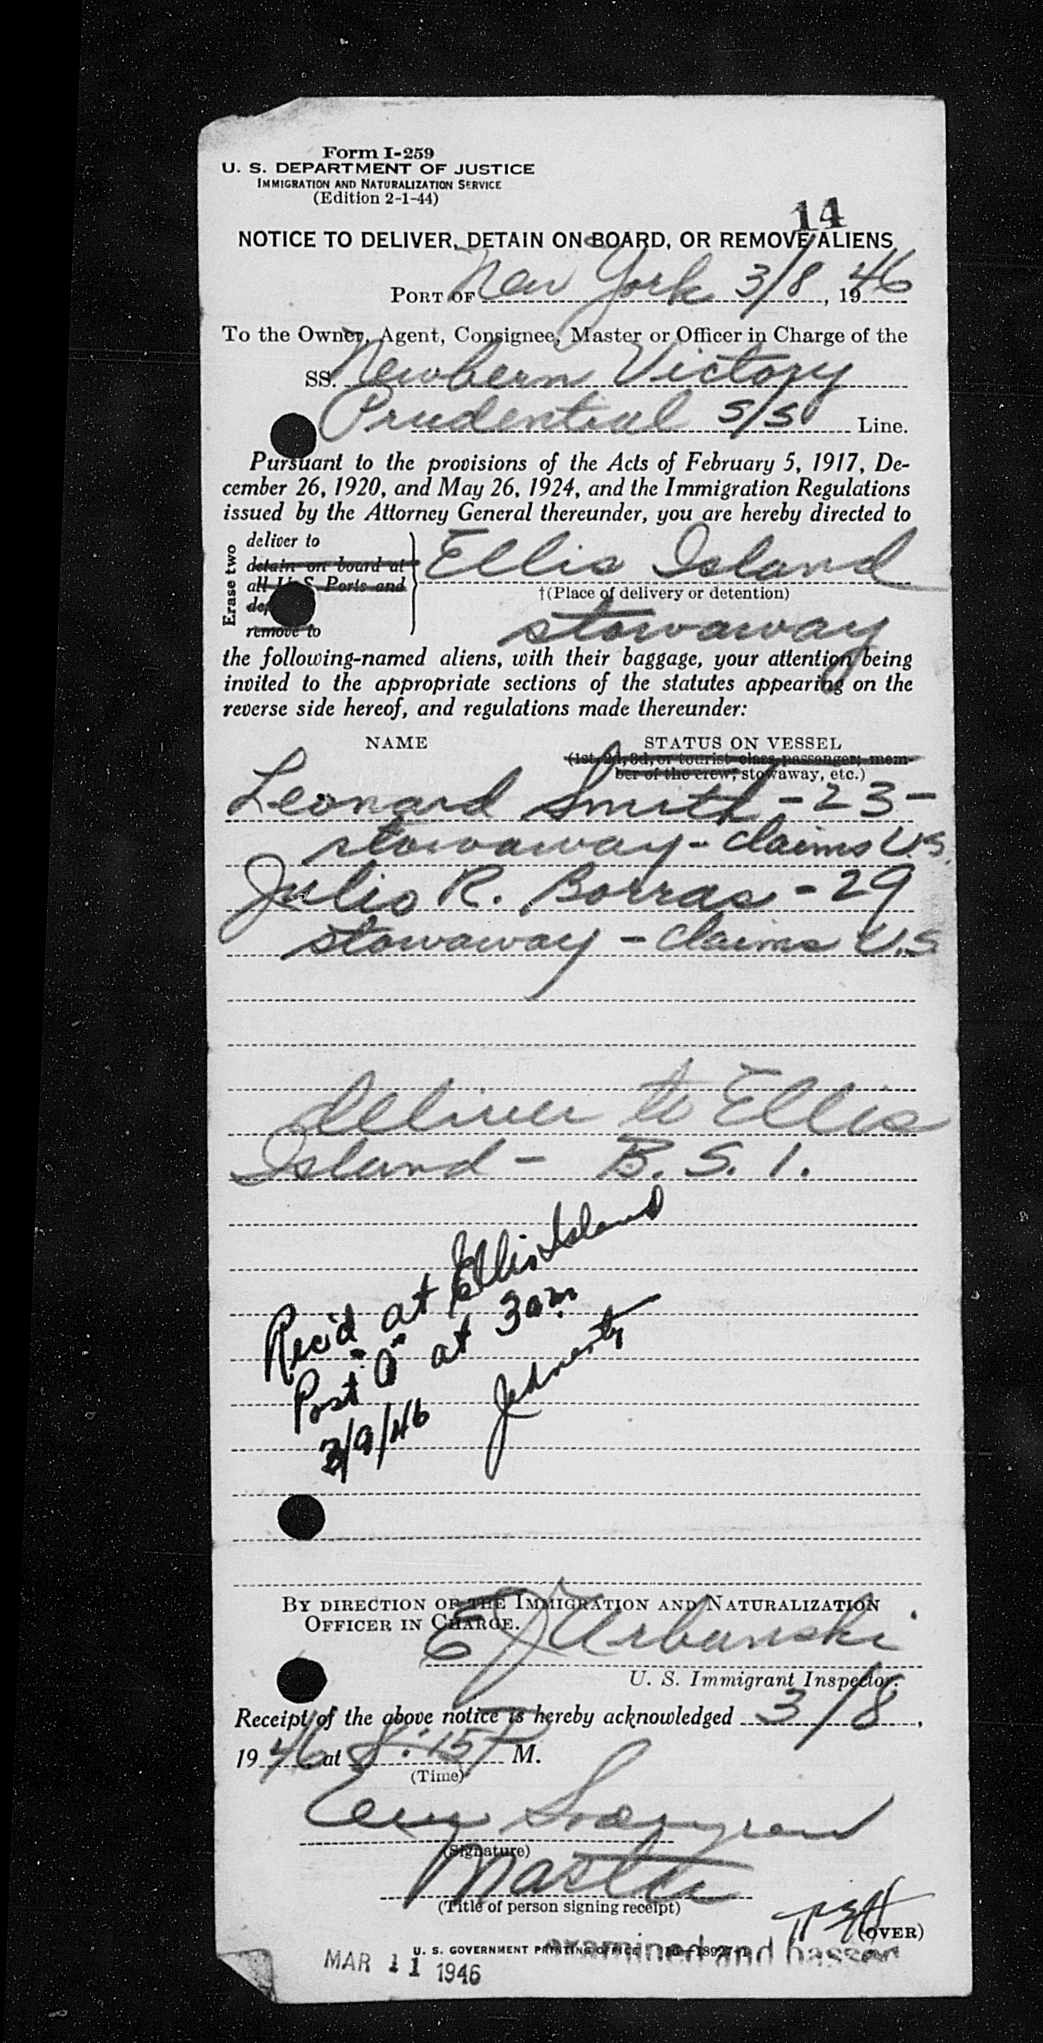 Form I-259
U. S. DEPARTMENT OF JUSTICE
IMMIGRATION AND NATURALIZATION SERVICE
(Edition 2-1-44)
14
NOTICE TO DELIVER, DETAIN ON BOARD, OR REMOVE ALIENS
PORT OF New York 3/8, 1946
To the Owner, Agent, Consignee, Master or Officer in Charge of the
SS. Newbern Victory
Prudential S/S Line.
Pursuant to the provisions of the Acts of February 5, 1917, De-
cember 26, 1920, and May 26, 1924, and the Immigration Regulations
issued by the Attorney General thereunder, you are hereby directed to
Erase two
deliver to
detain on board at
all U.S. Ports and
remove to
Ellis Island
†(Place of delivery or detention)
stowaway
the following-named aliens, with their baggage, your attention being
invited to the appropriate sections of the statutes appearing on the
reverse side hereof, and regulations made thereunder:
NAME STATUS ON VESSEL
(1st, 2d, 3d, or tourist class passenger; mem-
ber of the crew; stowaway, etc.)
Leonard Smith - 23 -
stowaway - claims U.S.
Julio R. Borras - 29
stowaway - claims U.S
deliver to Ellis
Island - B. S. I.
Rec'd at Ellis Island
Post "0" at 3am
3/9/46
BY DIRECTION OF THE IMMIGRATION AND NATURALIZATION
OFFICER IN CHARGE.
E J Urbanski
U. S. Immigrant Inspector.
Receipt of the above notice is hereby acknowledged 3/8,
1946 at 8:15 P M.
(Time)
(Signature)
Master
(Title of person signing receipt)
(OVER)
U. S. GOVERNMENT PRINTING OFFICE
examined and passed
MAR 11 1946